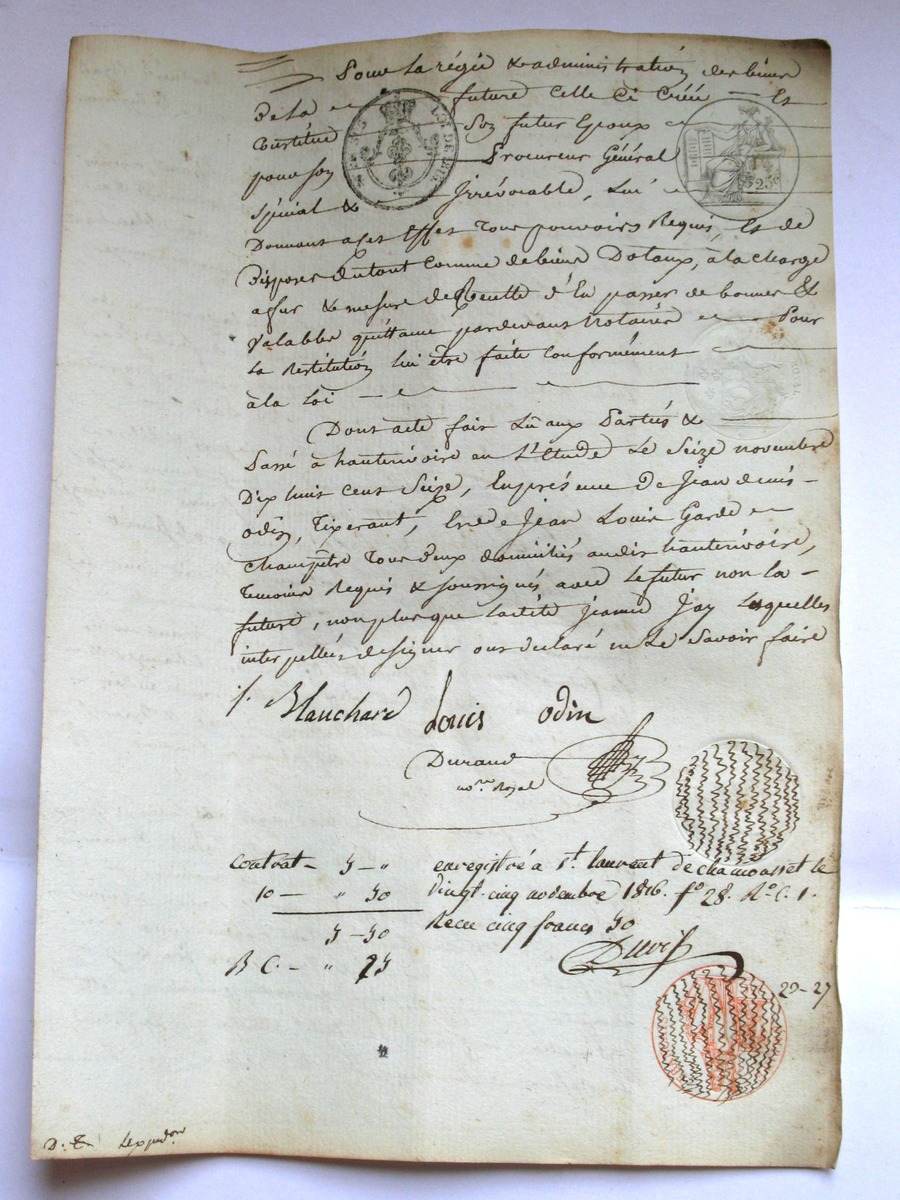 Sous la régie & administration des biens
De la future Celle Ci Créée Et
Constitue Son futur Epoux
pour son Procureur Général
Spécial & Irrévocable, Lui
Donnant a ses Effet Tous pouvoirs Requis, Et de
Disposer du tout Comme de biens Dotaux, à la charge
a fur & mesure de Recette d'En passer de bonnes &
Valables quittance pardevant Notaire Pour
La Restitution lui être faite Conformément
à la Loi
Dont acte fait Lu aux Parties &
Passé à hauterivoire en L'Etude Le Seize novembre
Dix huit cent Seize, En présence De Jean denis
odin, Tixerant, Et de Jean Louis Garde
Champêtre Tous deux domiciliés audit hauterivoire,
Temoins Requis & soussignés avec Le futur non la
future, non plus que Ladite Jeanne Jay Lesquelles
interpellées de signer ont déclaré ne Le Savoir faire
Blanchard Louis odin
Durand
no.re Royal
Contrat - 5 - "
10 - " 50
5 - 50
enregistré à St. laurent de chamousset le
Vingt-cinq novembre 1816. f° 28. R° C. 1.
Recu cinq francs 50
29-27